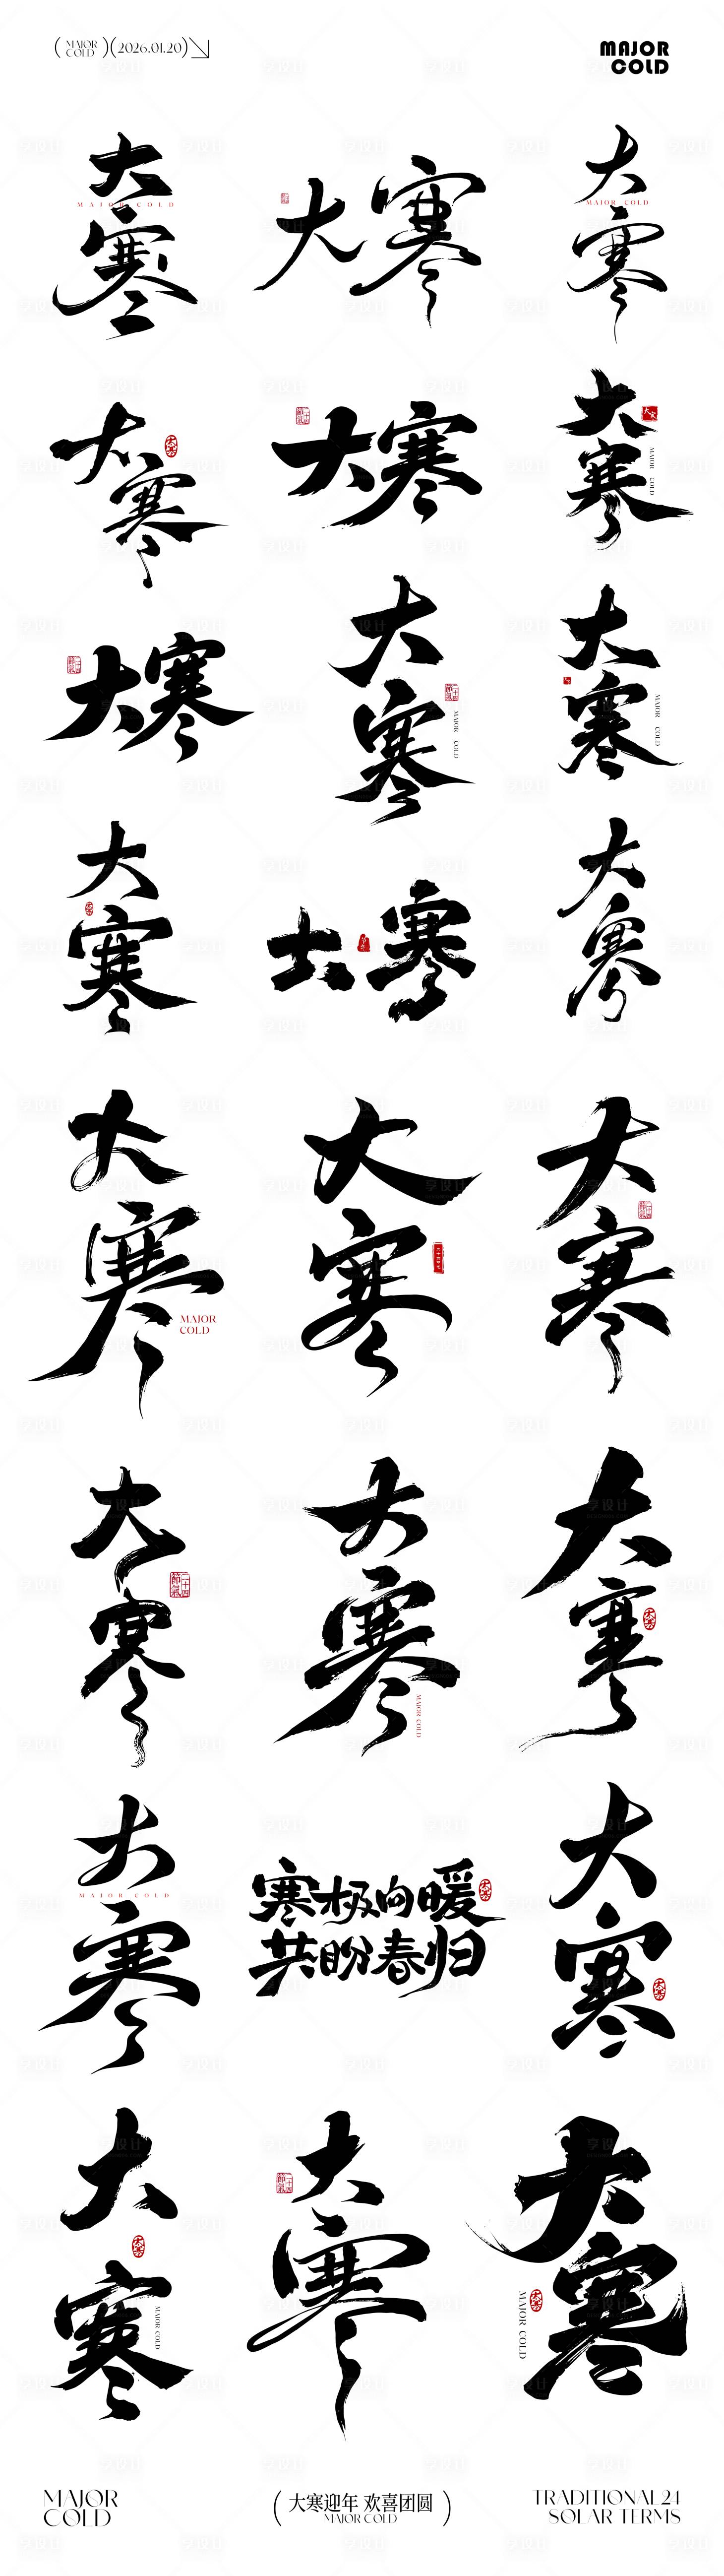 ( MAJOR COLD )(2026.01.20)
MAJOR
COLD
大寒
MAJOR COLD
大寒
大寒
MAJOR COLD
大寒
大寒
大寒
大寒
MAJOR COLD
大寒
大寒
MAJOR COLD
大寒
MAJOR COLD
大寒
大寒
大寒
大寒
MAJOR
COLD
大寒
大寒
大寒
大寒
大寒
MAJOR COLD
大寒
大寒
大寒
MAJOR COLD
寒极向暖
共盼春归
大寒
大寒
大寒
大寒
MAJOR COLD
大寒
大寒
大寒
MAJOR COLD
MAJOR
COLD
( 大寒迎年 欢喜团圆 )
MAJOR COLD
TRADITIONAL 24
SOLAR TERMS